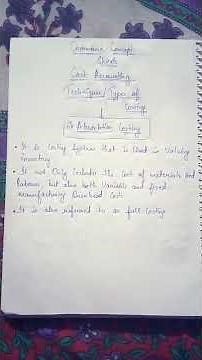 Commerce Concept
Shorts
Cost Accounting
Techniques/Types of
Costing
Absorbtion Costing
• It is Costing System that is Used in Valuing
inventory
• It not Only Includes the Cost of materials and
Labour, but also both Variable and fixed
manufacturing Overhead Costs
• It is also referred to as full Costing